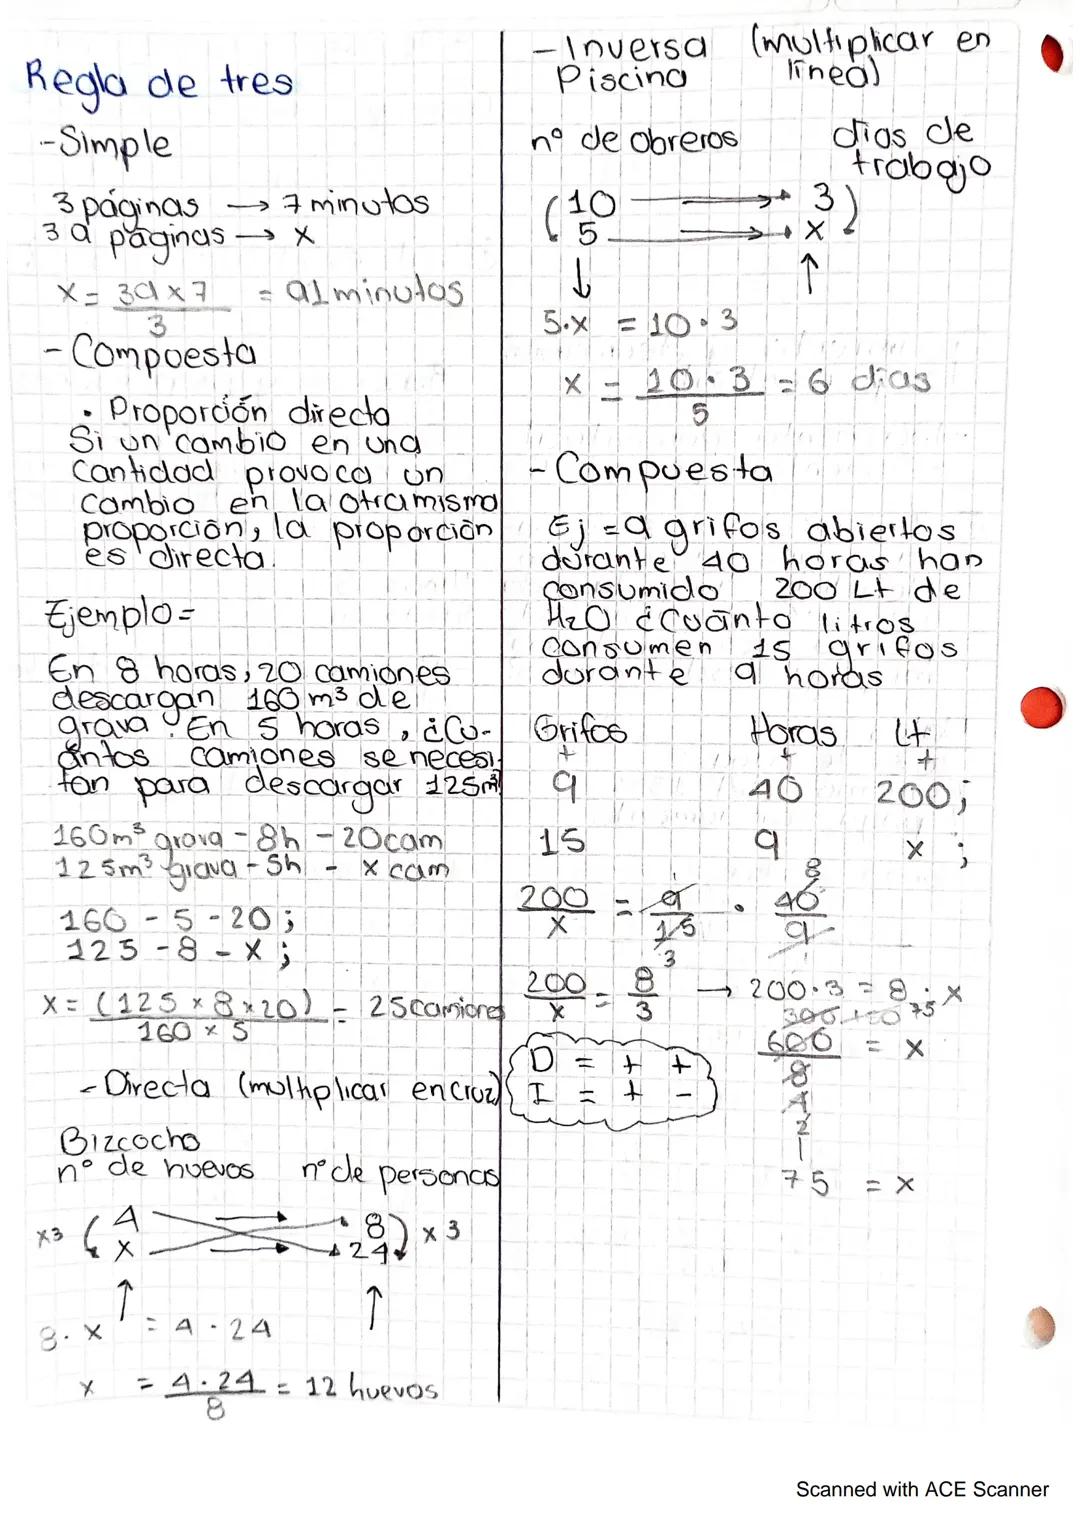 Regla de tres
-Simple
3 páginas → 7 minutos
39 páginas → x
x = 39 x 7 / 3 = 91 minutos
- Compuesta
• Proporción directa
Si un cambio en una
cantidad provoca un
cambio en la otra misma
proporción, la proporción
es directa.
Ejemplo=
En 8 horas, 20 camiones
descargan 160 m³ de
grava. En 5 horas, ¿Cu-
ántos camiones se necesi-
tan para descargar 125m³
160m³ grava - 8h - 20cam
125m³ grava - 5h - x cam
160 - 5 - 20;
125 - 8 - x;
x = (125 x 8 x 20) / 160 x 5 = 25 camiones
- Directa (multiplicar en cruz)
Bizcocho
nº de huevos nº de personas
x3 ( 4 8 ) x 3
x 24
8 . x = 4 . 24
x = 4 . 24 / 8 = 12 huevos
- Inversa (multiplicar en
Piscina línea)
nº de obreros días de
trabajo
10 → 3
5 → x
5.x = 10 . 3
x = 10 . 3 / 5 = 6 días
- Compuesta
Ej = 9 grifos abiertos
durante 40 horas han
consumido 200 Lt de
H₂O ¿Cuánto litros
consumen 15 grifos
durante 9 horas
Grifos Horas Lt
+ + +
9 40 200;
15 9 x ;
200 / x = 9 / 15 . 40 / 9
1 3 8 1
200 / x = 8 / 3 → 200.3 = 8 . x
75
600 / 8 = x
4
2
1
D = + +
I = + -
75 = x
Scanned with ACE Scanner